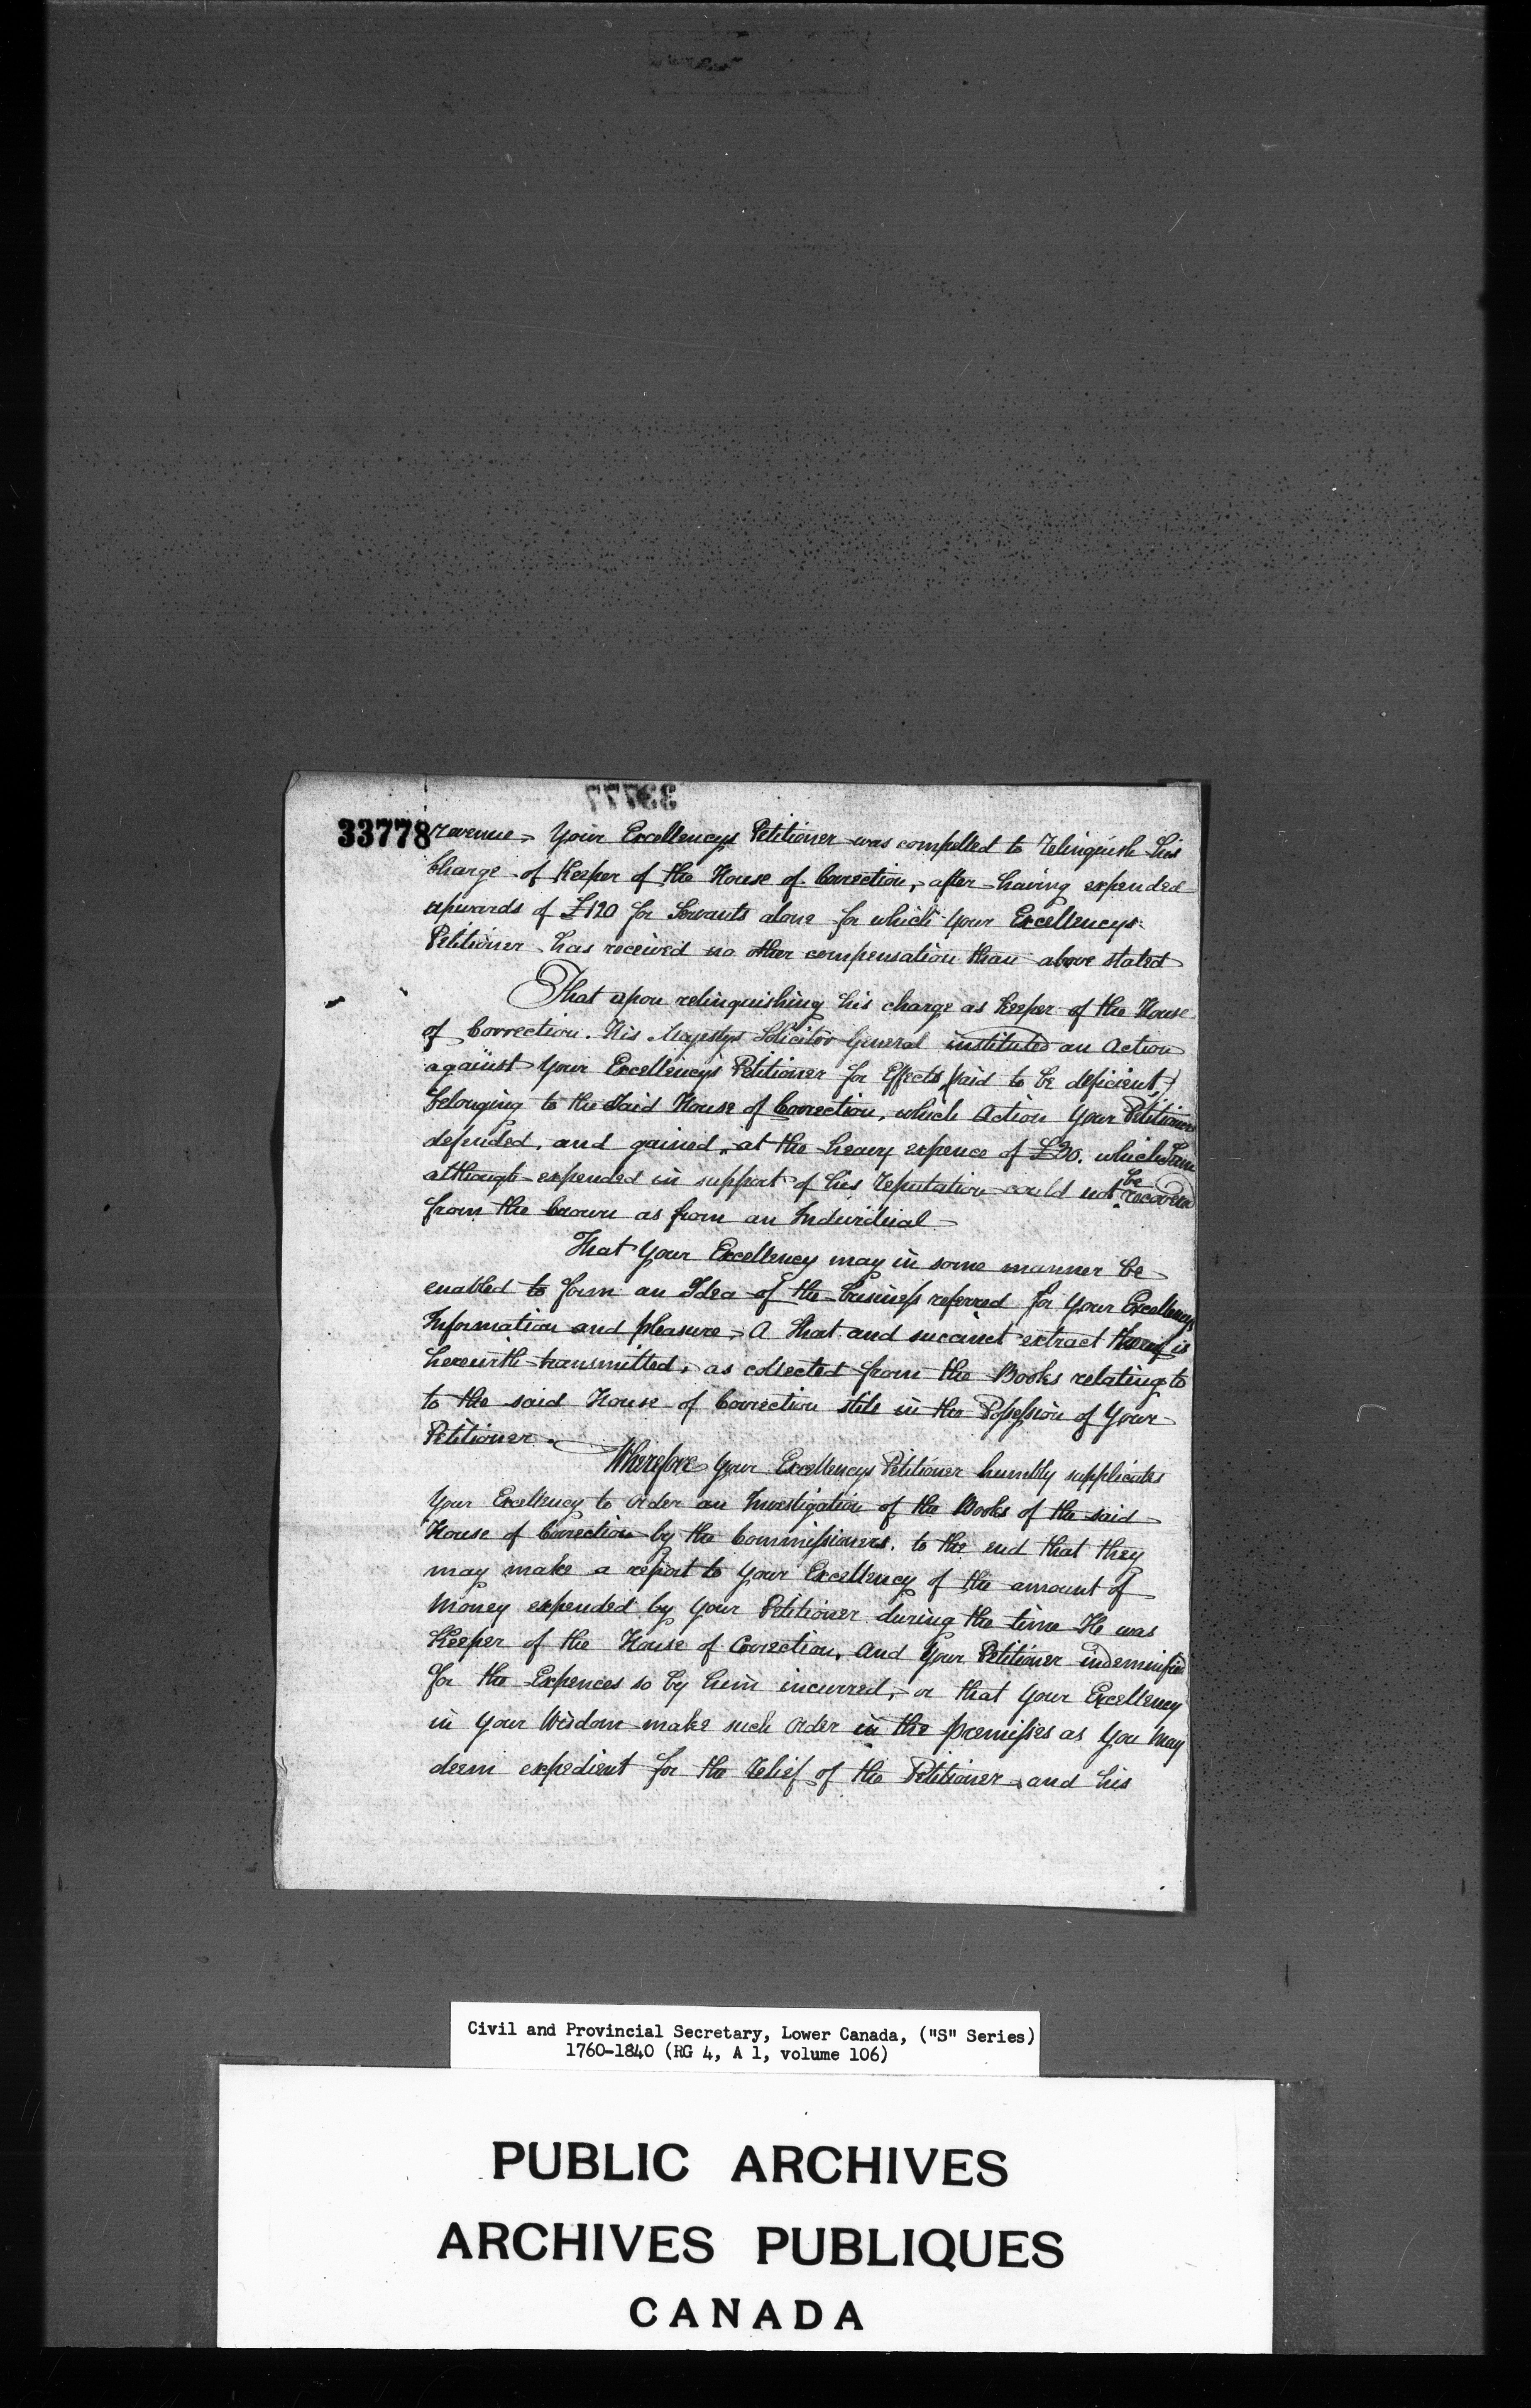 33777
33778
revenue, Your Excellencys Petitioner was compelled to relinquish his
Charge of Keeper of the House of Correction, after having expended
upwards of £120 for Servants alone for which Your Excellencys
Petitioner has received no other compensation than above stated
That upon relinquishing his charge as Keeper of the House
of Correction. His Majestys Solicitor General instituted an Action
against Your Excellencys Petitioner for Effects (said to be deficient)
belonging to the said House of Correction, which Action Your Petitioner
defended, and gained, at the heavy expence of £30. which Sum
although expended in support of his reputation could not be recovered
from the Crown as from an Individual
That Your Excellency may in some manner be
enabled to form an Idea of the business referred for Your Excellencys
Information and pleasure, A Short and succinct extract thereof is
herewith transmitted, as collected from the Books relating to
to the said House of Correction still in the Possession of Your
Petitioner.
Wherefore Your Excellencys Petitioner humbly supplicates
Your Excellency to order an Investigation of the Books of the said
House of Correction by the Commissioners. to the end that they
may make a report to Your Excellency of the amount of
Money expended by Your Petitioner during the time He was
Keeper of the House of Correction, And Your Petitioner indemnified
for the Expences so by him incurred, or that Your Excellency
in Your Wisdom make such order in the premises as You may
deem expedient for the relief of the Petitioner, and his
Civil and Provincial Secretary, Lower Canada, ("S" Series)
1760-1840 (RG 4, A 1, volume 106)
PUBLIC ARCHIVES
ARCHIVES PUBLIQUES
CANADA